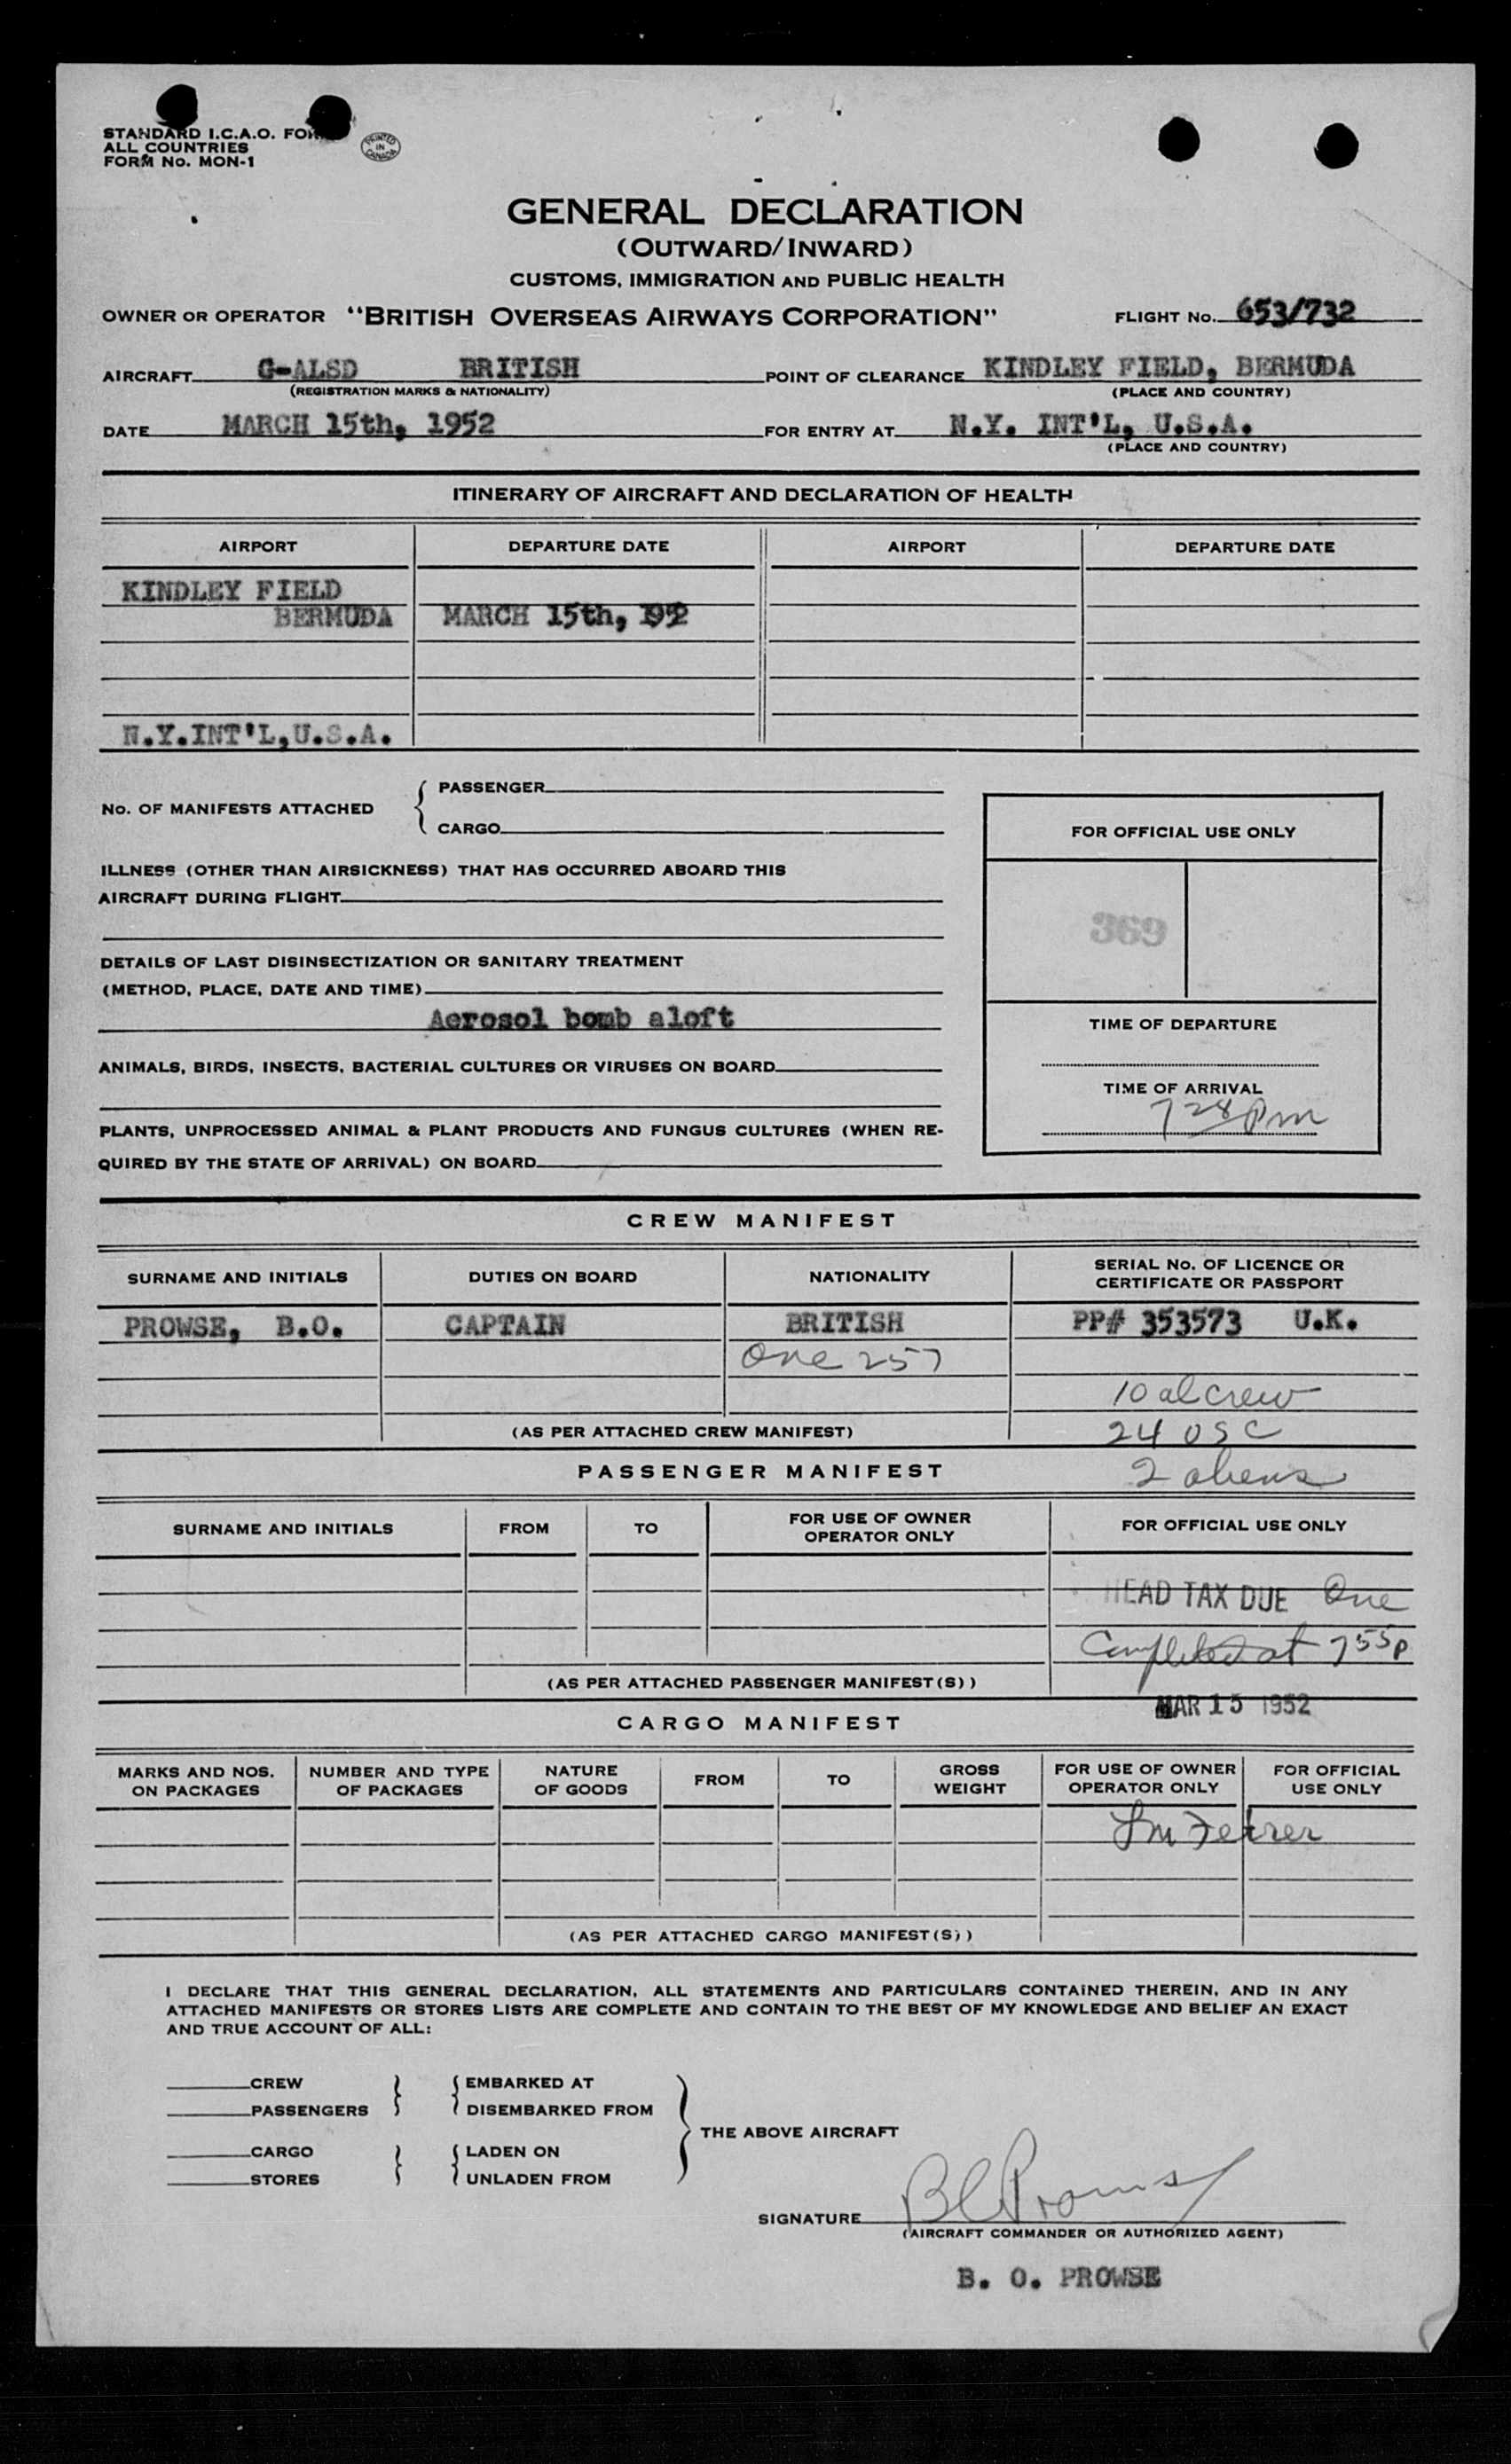 STANDARD I.C.A.O. FORM
ALL COUNTRIES
FORM No. MON-1
PRINTED IN CANADA
GENERAL DECLARATION
(OUTWARD/INWARD)
CUSTOMS, IMMIGRATION AND PUBLIC HEALTH
OWNER OR OPERATOR "BRITISH OVERSEAS AIRWAYS CORPORATION" FLIGHT No. 653/732
AIRCRAFT G-ALSD BRITISH POINT OF CLEARANCE KINDLEY FIELD, BERMUDA
(REGISTRATION MARKS & NATIONALITY) (PLACE AND COUNTRY)
DATE MARCH 15th, 1952 FOR ENTRY AT N.Y. INT'L, U.S.A.
(PLACE AND COUNTRY)
ITINERARY OF AIRCRAFT AND DECLARATION OF HEALTH
AIRPORT DEPARTURE DATE AIRPORT DEPARTURE DATE
KINDLEY FIELD
BERMUDA MARCH 15th, 1952
N.Y.INT'L,U.S.A.
No. OF MANIFESTS ATTACHED { PASSENGER
CARGO
FOR OFFICIAL USE ONLY
ILLNESS (OTHER THAN AIRSICKNESS) THAT HAS OCCURRED ABOARD THIS
AIRCRAFT DURING FLIGHT
369
DETAILS OF LAST DISINSECTIZATION OR SANITARY TREATMENT
(METHOD, PLACE, DATE AND TIME)
Aerosol bomb aloft
TIME OF DEPARTURE
ANIMALS, BIRDS, INSECTS, BACTERIAL CULTURES OR VIRUSES ON BOARD
TIME OF ARRIVAL
7 28 pm
PLANTS, UNPROCESSED ANIMAL & PLANT PRODUCTS AND FUNGUS CULTURES (WHEN RE-
QUIRED BY THE STATE OF ARRIVAL) ON BOARD
CREW MANIFEST
SURNAME AND INITIALS DUTIES ON BOARD NATIONALITY SERIAL No. OF LICENCE OR
CERTIFICATE OR PASSPORT
PROWSE, B.O. CAPTAIN BRITISH PP# 353573 U.K.
One 257
10 al crew
(AS PER ATTACHED CREW MANIFEST) 24 USC
PASSENGER MANIFEST 2 aliens
SURNAME AND INITIALS FROM TO FOR USE OF OWNER
OPERATOR ONLY FOR OFFICIAL USE ONLY
HEAD TAX DUE One
Completed at 7 55p
(AS PER ATTACHED PASSENGER MANIFEST(S))
MAR 15 1952
CARGO MANIFEST
MARKS AND NOS.
ON PACKAGES NUMBER AND TYPE
OF PACKAGES NATURE
OF GOODS FROM TO GROSS
WEIGHT FOR USE OF OWNER
OPERATOR ONLY FOR OFFICIAL
USE ONLY
(AS PER ATTACHED CARGO MANIFEST(S))
I DECLARE THAT THIS GENERAL DECLARATION, ALL STATEMENTS AND PARTICULARS CONTAINED THEREIN, AND IN ANY
ATTACHED MANIFESTS OR STORES LISTS ARE COMPLETE AND CONTAIN TO THE BEST OF MY KNOWLEDGE AND BELIEF AN EXACT
AND TRUE ACCOUNT OF ALL:
CREW } { EMBARKED AT
PASSENGERS } { DISEMBARKED FROM
} THE ABOVE AIRCRAFT
CARGO } { LADEN ON
STORES } { UNLADEN FROM
SIGNATURE
(AIRCRAFT COMMANDER OR AUTHORIZED AGENT)
B. O. PROWSE